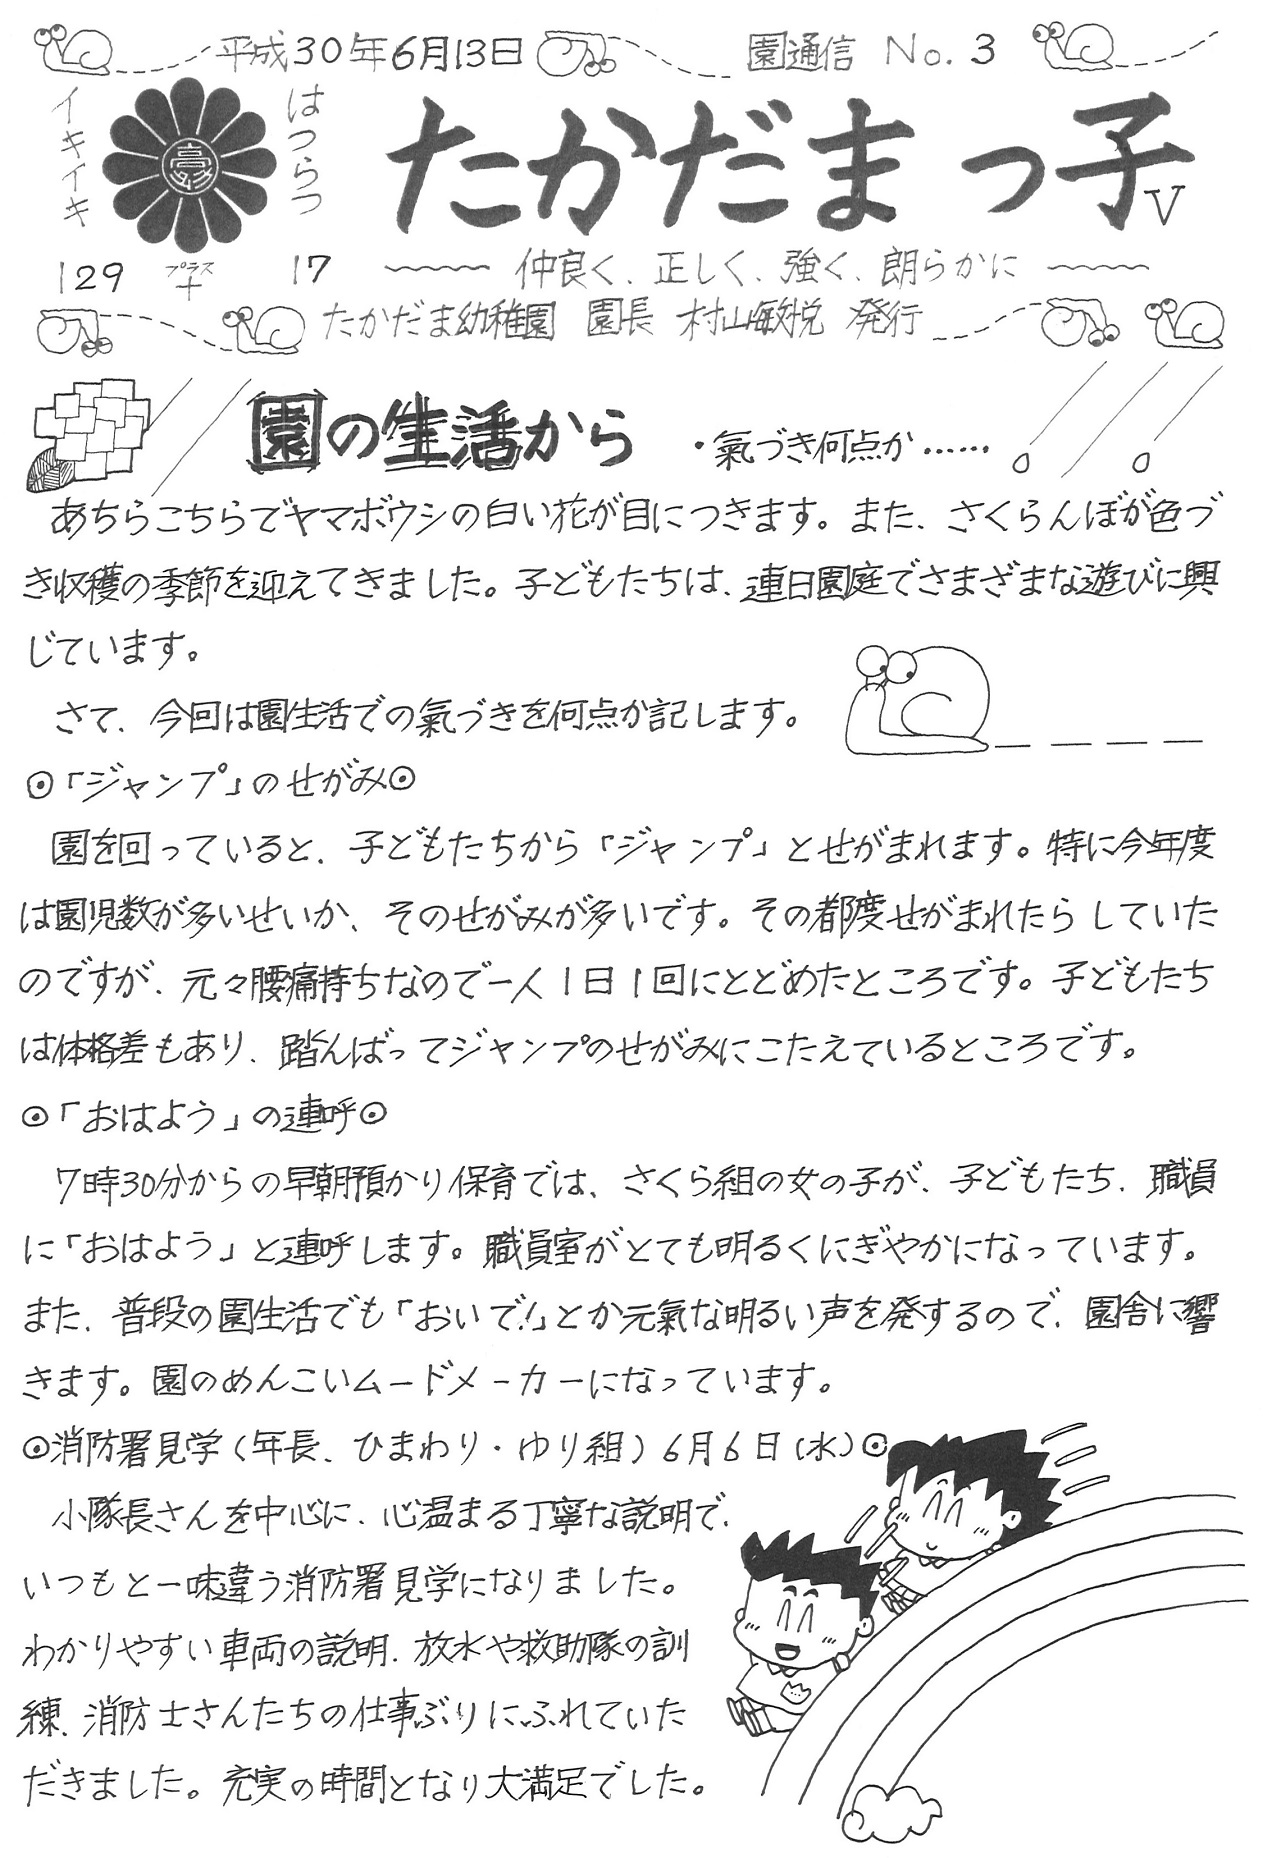 平成30年6月13日
園通信 No.3
イキイキ
はつらつ
たかだまっ子
V
129 プラス+ 17
仲良く、正しく、強く、朗らかに
たかだま幼稚園 園長 村山敏悦 発行
園の生活から ・氣づき何点か……
あちらこちらでヤマボウシの白い花が目につきます。また、さくらんぼが色づ
き収穫の季節を迎えてきました。子どもたちは、連日園庭でさまざまな遊びに興
じています。
さて、今回は園生活での氣づきを何点か記します。
⊙「ジャンプ」のせがみ⊙
園を回っていると、子どもたちから「ジャンプ」とせがまれます。特に今年度
は園児数が多いせいか、そのせがみが多いです。その都度せがまれたらしていた
のですが、元々腰痛持ちなので一人1日1回にとどめたところです。子どもたち
は体格差もあり、踏んばってジャンプのせがみにこたえているところです。
⊙「おはよう」の連呼⊙
7時30分からの早朝預かり保育では、さくら組の女の子が、子どもたち、職員
に「おはよう」と連呼します。職員室がとても明るくにぎやかになっています。
また、普段の園生活でも「おいで!」とか元氣な明るい声を発するので、園舎に響
きます。園のめんこいムードメーカーになっています。
⊙消防署見学(年長、ひまわり・ゆり組)6月6日(水)⊙
小隊長さんを中心に、心温まる丁寧な説明で、
いつもと一味違う消防署見学になりました。
わかりやすい車両の説明、放水や救助隊の訓
練、消防士さんたちの仕事ぶりにふれていた
だきました。充実の時間となり大満足でした。